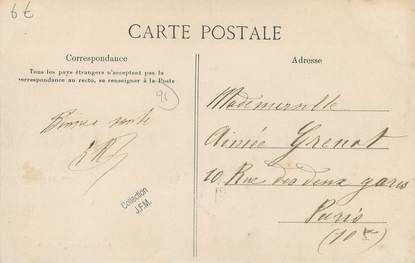 6€
CARTE POSTALE
Correspondance
Tous les pays étrangers n'acceptent pas la
correspondance au recto, se renseigner à la Poste
Adresse
91
Bonne santé
Collection
J.F.M.
Mademoiselle
Aimée Grenot
10 Rue des deux gares
Paris
(10e)